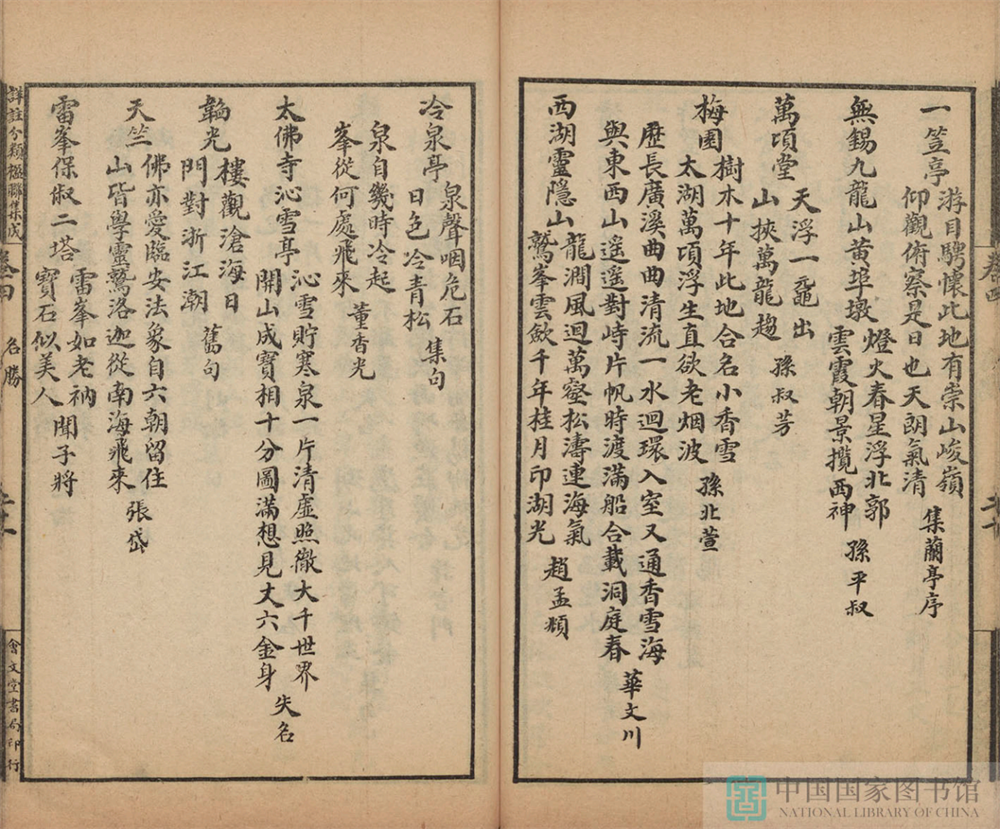 一笠亭
游目騁懷此地有崇山峻嶺
仰觀俯察是日也天朗氣清
集蘭亭序
無錫九龍山黄埠墩
燈火春星浮北郭
雲霞朝景攬西神
孫平叔
萬頃堂
天浮一黿出
山挾萬龍趨
孫叔芳
梅園
樹木十年此地合名小香雪
太湖萬頃浮生直欲老烟波
孫北萱
歷長廣溪曲曲清流一水迴環入室又通香雪海
與東西山遥遥對峙片帆時渡滿船合載洞庭春
華文川
西湖靈隱山
龍澗風迴萬壑松濤連海氣
鷲峯雲斂千年桂月印湖光
趙孟頫
冷泉亭
泉聲咽危石
日色冷青松
集句
泉自幾時冷起
峯從何處飛來
董香光
大佛寺沁雪亭
沁雪貯寒泉一片清虚照徹大千世界
開山成寶相十分圖滿想見丈六金身
失名
韜光
樓觀滄海日
門對浙江潮
舊句
天竺
佛亦愛臨安法象自六朝留住
山皆學靈鷲洛迦從南海飛來
張岱
雷峯保俶二塔
雷峯如老衲
寶石似美人
聞子將
詳註分類楹聯集成
卷四
名勝
會文堂書局印行
卷四
中国国家图书馆
NATIONAL LIBRARY OF CHINA